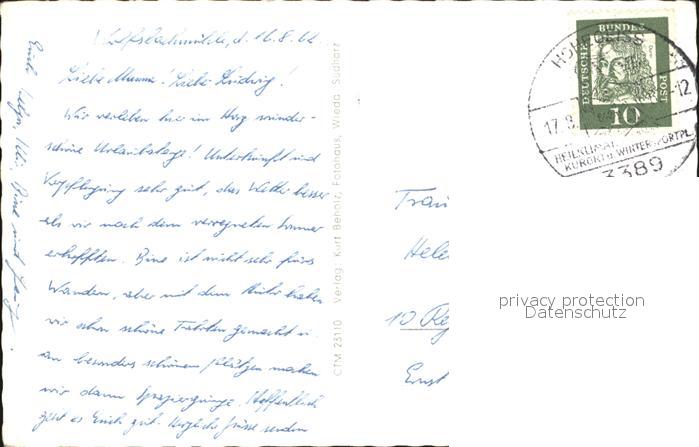 Wolfsbachmühle, d. 16.8.62
Liebe Mama! Liebe Ludwig!
Wir verleben hier im Harz wunder-
schöne Urlaubstage! Unterkunft und
Verpflegung sehr gut, das Wetter besser
als wir nach dem verregneten Sommer
erhofften. Bine ist nicht sehr fürs
Wandern, aber mit dem Auto haben
wir schon schöne Fahrten gemacht u.
an besonders schönen Plätzen machen
wir dann Spaziergänge. Hoffentlich
geht es Euch gut. Herzliche Grüsse senden
Euch Helga, Uli, Bine und
CTM 23110 Verlag: Kurt Beholz, Fotohaus, Wieda Südharz
DEUTSCHE BUNDES POST
10
HOHEGEISS
17.8. -12
HEILKLIMAT.
KURORT u. WINTERSPORTPL.
3389
Frau
Hele
10
Ernst
privacy protection
Datenschutz